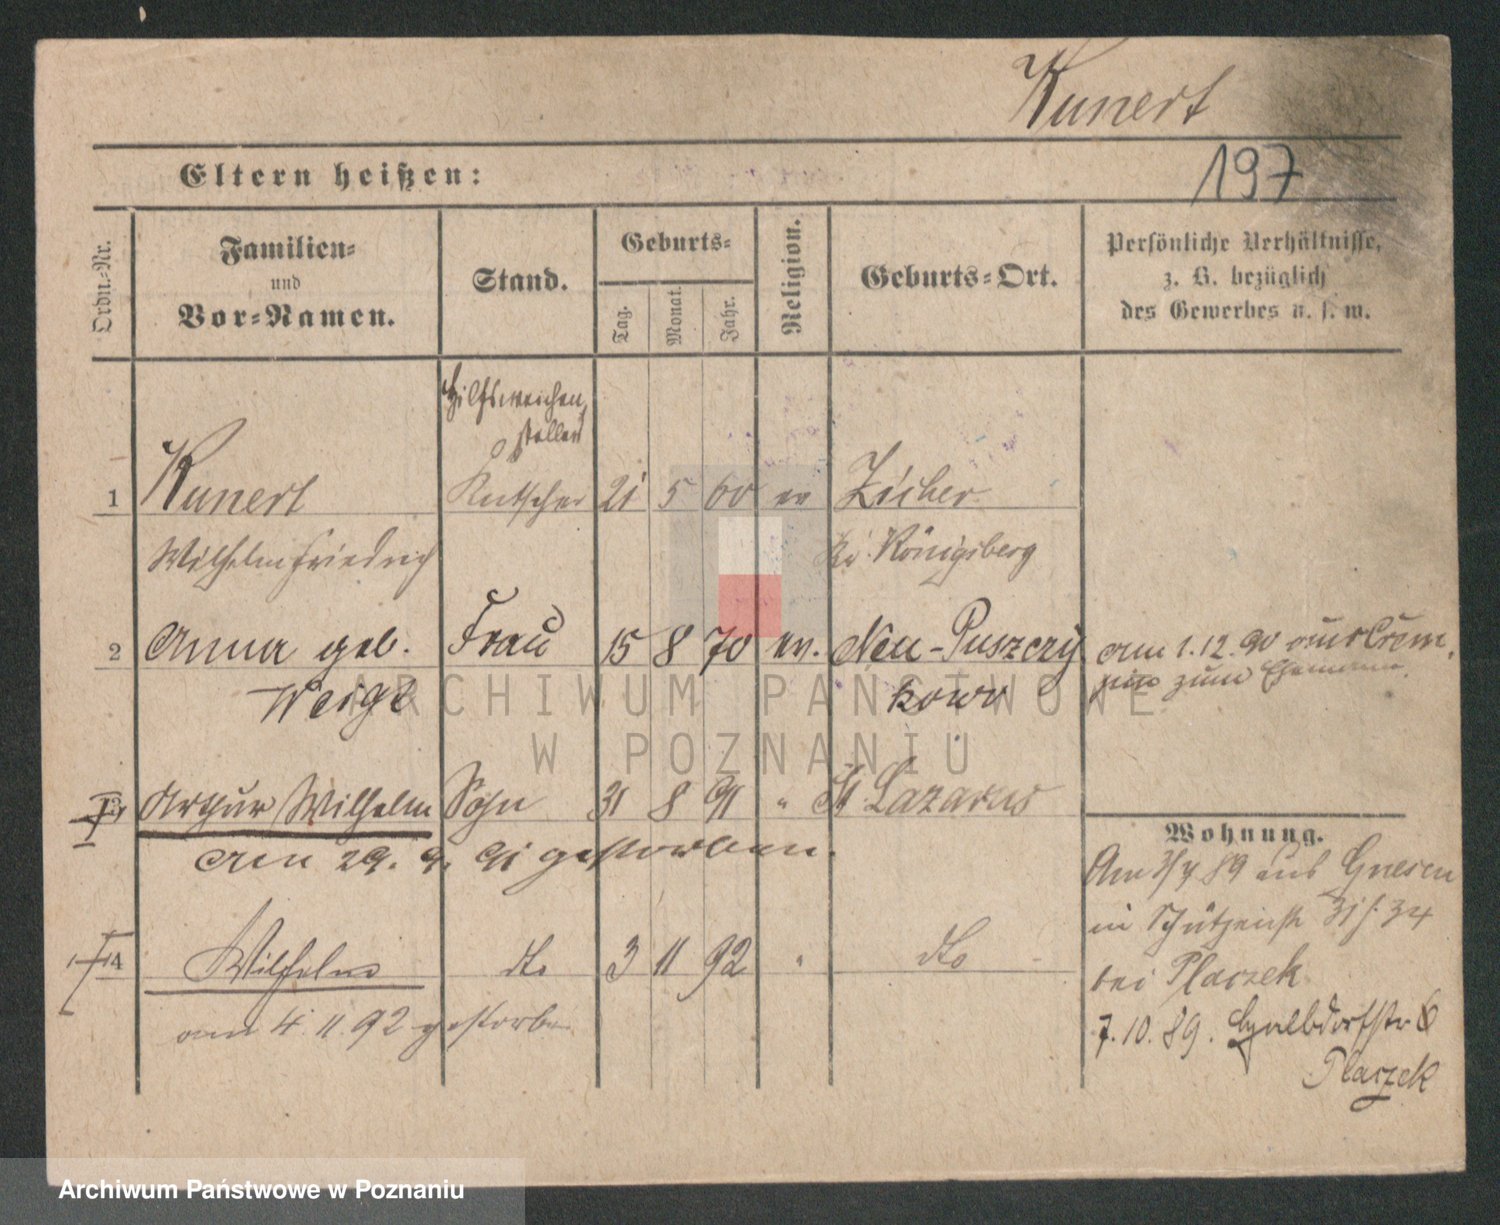 Kunert
197
Eltern heißen:
Ordn.-Nr.
Familien-
und
Vor-Namen.
Stand.
Geburts-
Tag.
Monat.
Jahr.
Religion.
Geburts-Ort.
Persönliche Verhältnisse,
z. B. bezüglich
des Gewerbes u. s. w.
Hilfsweichen
steller
1 Kunert Kutscher 21 5 60 ev Zicher
Wilhelm Friedrich Kr. Königsberg
2 Anna geb. Frau 15 8 70 ev. Neu-Puszczy am 1.12.90 aus
Weigt kowo zum Ehemann.
3 Arthur Wilhelm Sohn 31 8 91 " St Lazarus
am 29. 9. 91 gestorben.
Wohnung.
Am 3/4 89 aus Gnesen
in Schützenstr 31 f. 34
4 Wilhelm dto 3 11 92 " dto
bei Placzek
am 4. 11. 92 gestorben
7.10.89. Halbdorfstr 6
Placzek
ARCHIWUM PAŃSTWOWE
W POZNANIU
Archiwum Państwowe w Poznaniu